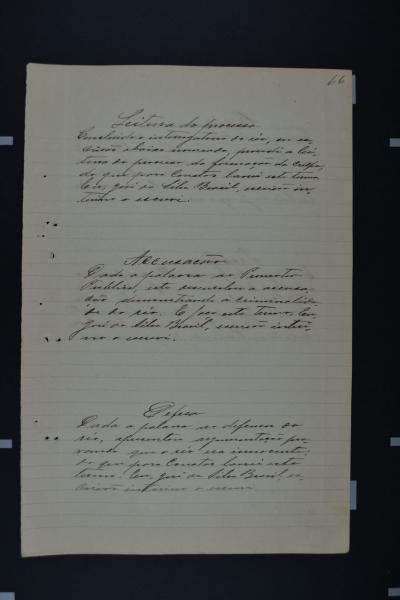 66
Leitura do processo
Concluido o interrogatorio do réo, eu es-
crivão abaixo nomeado, procedi a lei-
tura do processo de formação da culpa,
do que para constar lavrei este termo.
Eu, José da Silva Brasil, escrivão in-
terino o escrevi.
Accusação
Dada a palavra ao Promotor
Publico, este sustentou a accusa-
ção demonstrando a criminalida-
de do réo. E faço este termo. Eu,
José da Silva Brasil, escrivão interi-
no o escrevi.
Defesa
Dada a palavra ao defensor do
réo, apresentou argumentação pro-
vando que o réo era innocente;
do que para constar lavrei este
termo. Eu, José da Silva Brasil, es-
crivão interino o escrevi.